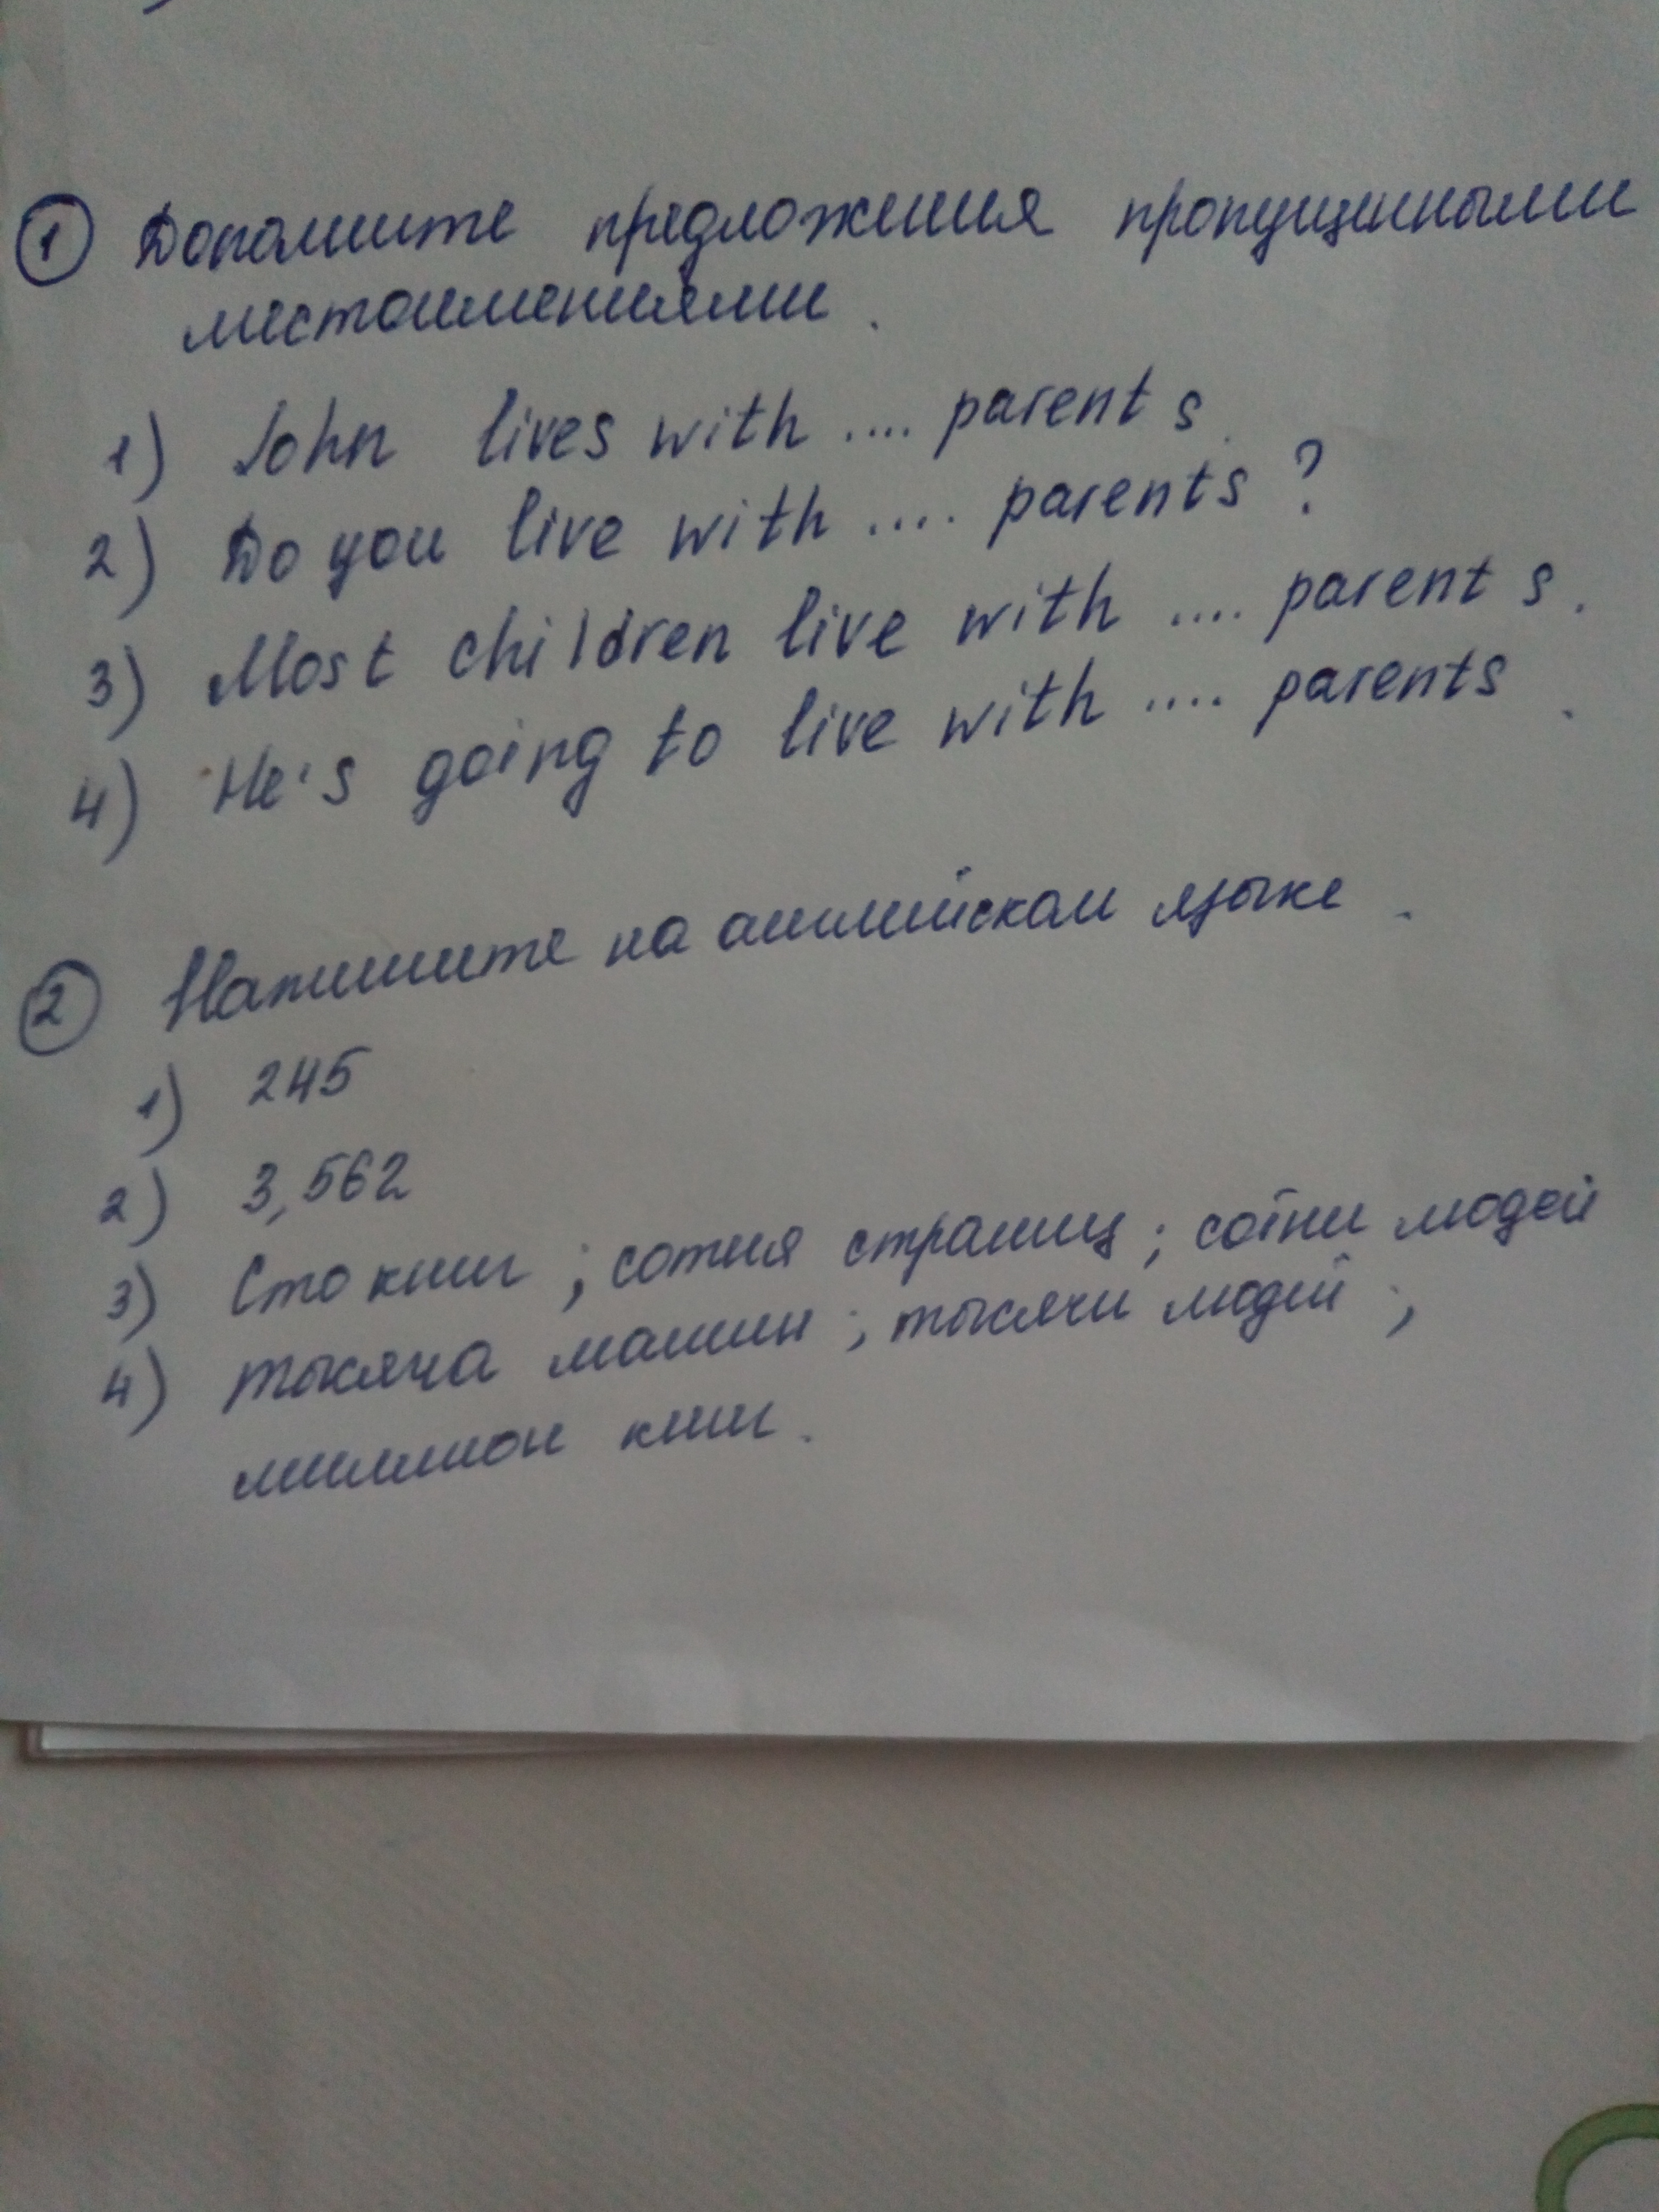 1 Дополните предложения пропущенными
местоимениями.
1) John lives with .... parents.
2) Do you live with .... parents?
3) Most children live with .... parents.
4) He's going to live with .... parents.
2 Напишите на английском языке.
1) 245
2) 3,562
3) Сто книг; сотня страниц; сотни людей
4) тысяча машин; тысячи людей;
миллион книг.